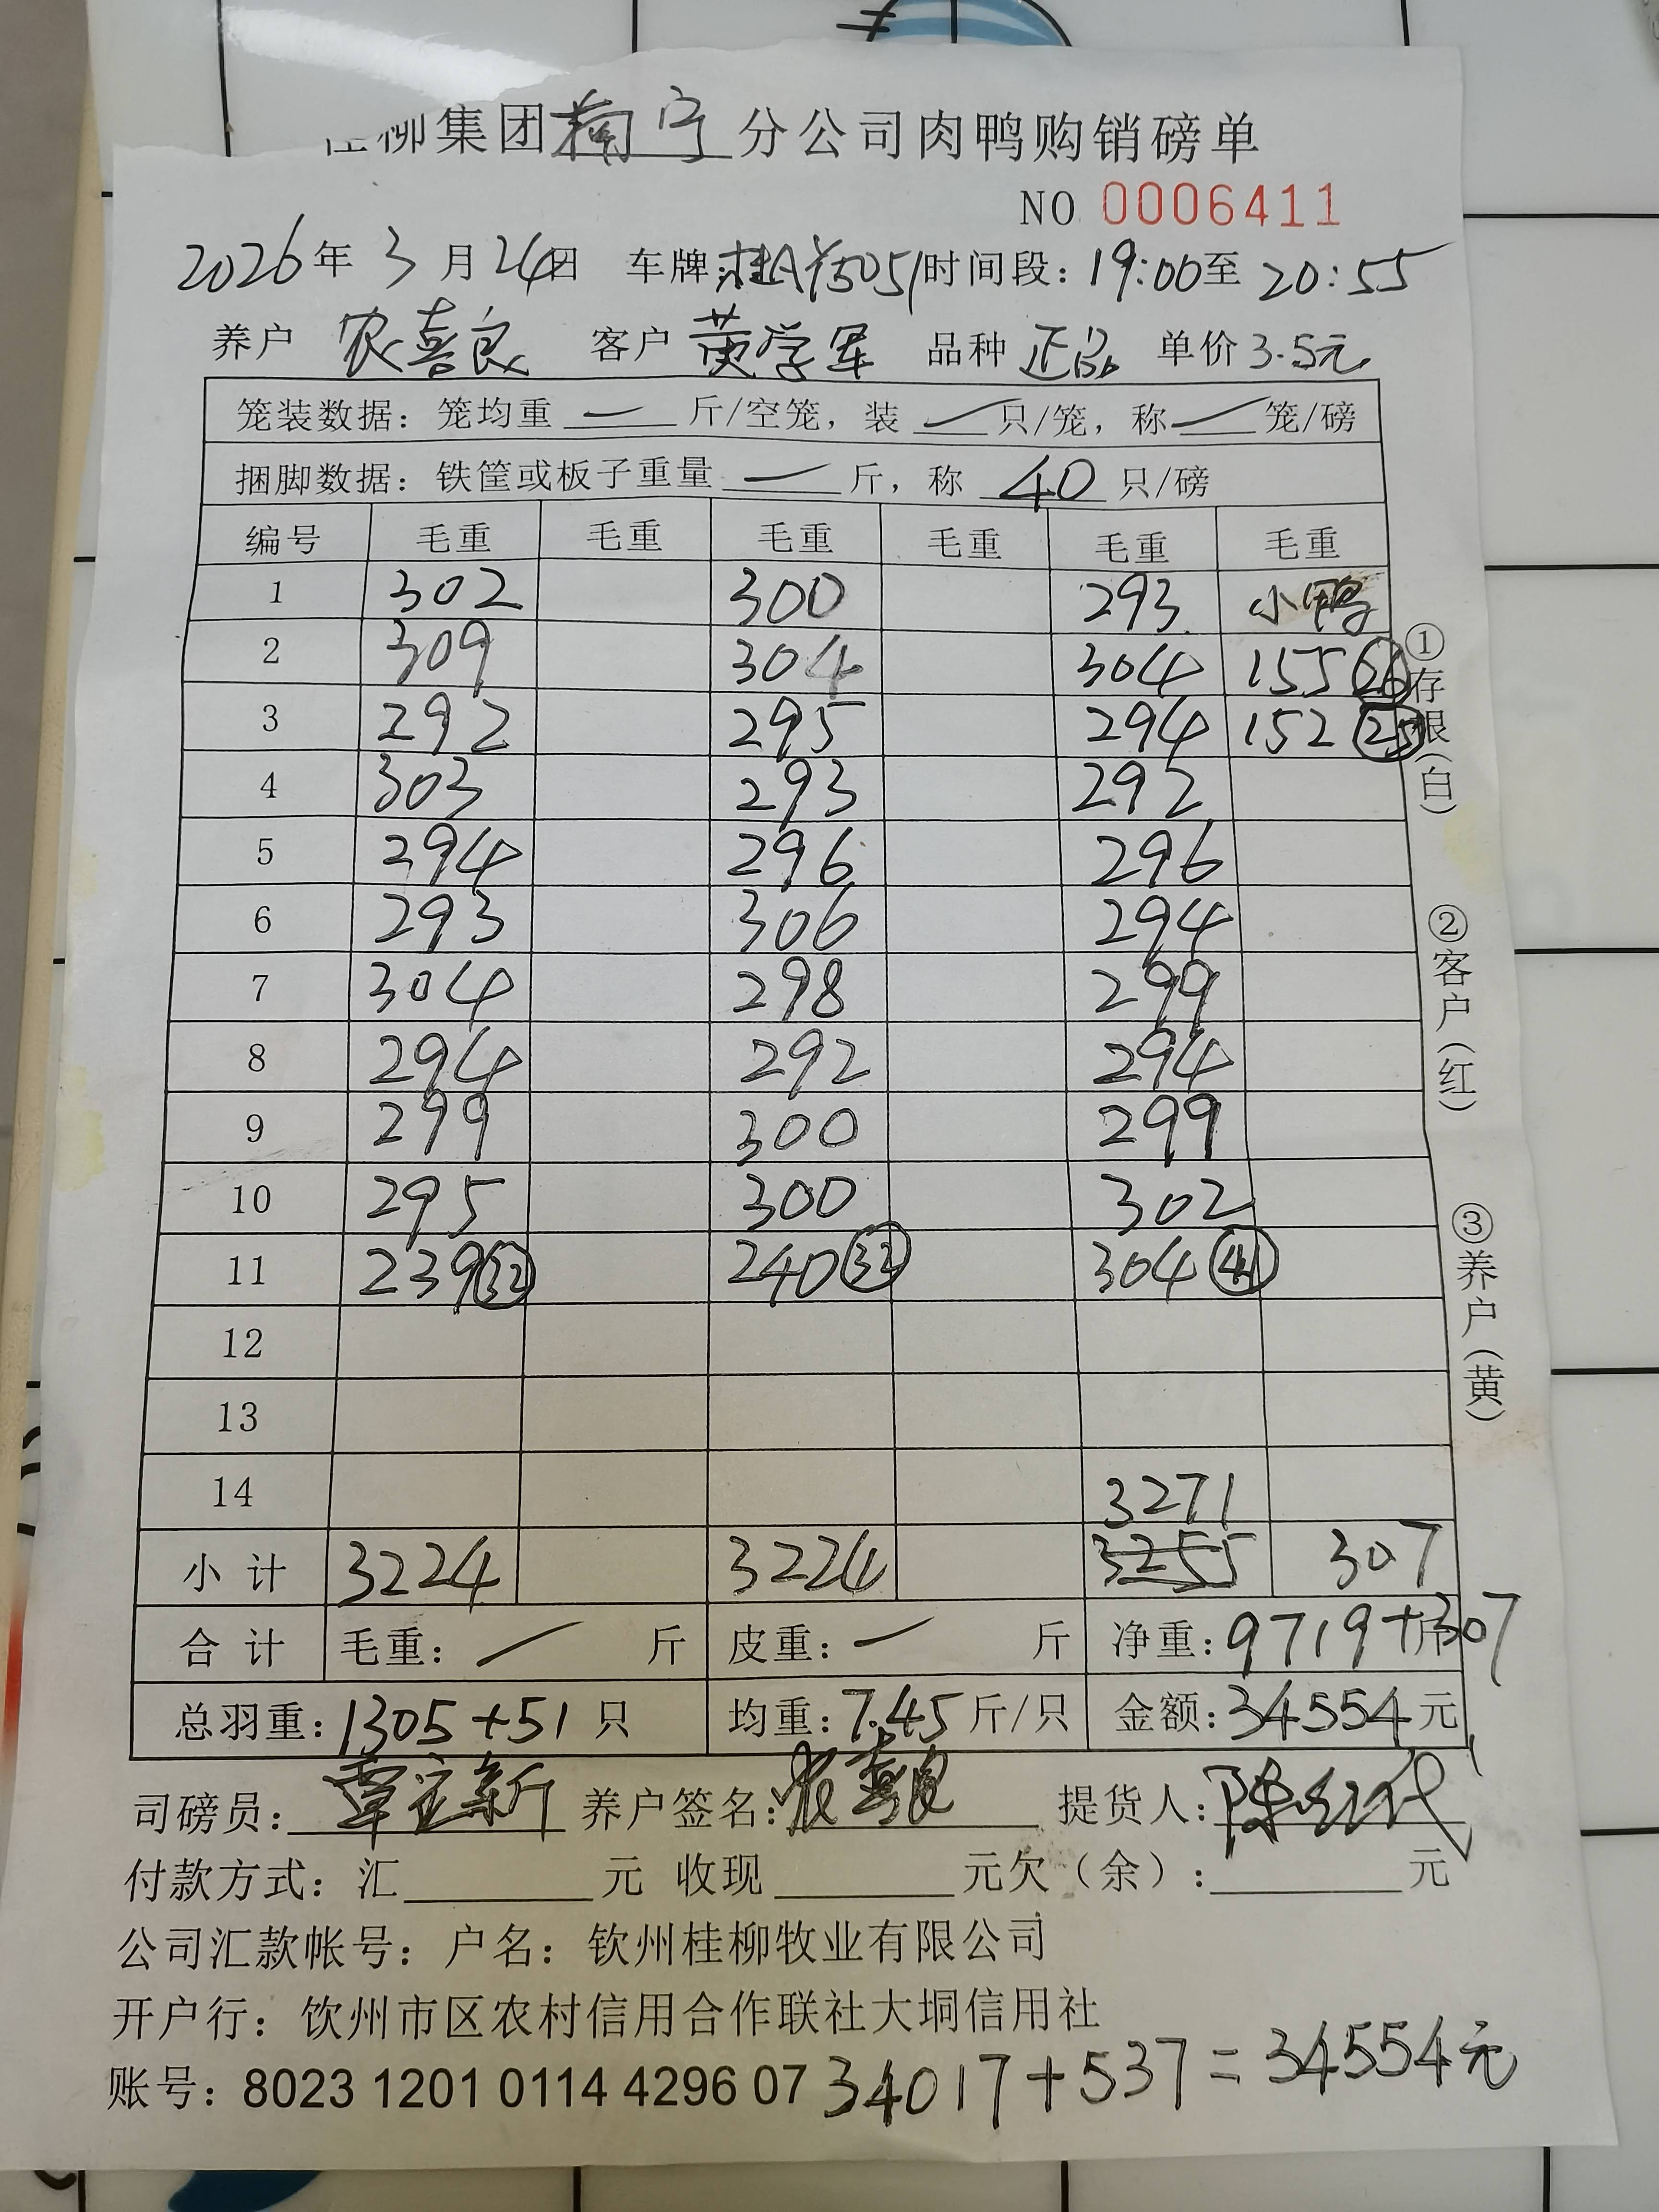 柳集团南宁分公司肉鸭购销磅单
NO 0006411
2026年3月24日 车牌:桂AY5051时间段:19:00至20:55
养户 农喜良 客户 黄学军 品种 正品 单价3.5元
笼装数据:笼均重 — 斤/空笼,装 — 只/笼,称 — 笼/磅
捆脚数据:铁筐或板子重量 — 斤,称 40 只/磅
编号 毛重 毛重 毛重 毛重 毛重 毛重
1 302 300 293 小鸭
2 309 304 304 155 26
3 292 295 294 152 25
4 303 293 292
5 294 296 296
6 293 306 294
7 304 298 299
8 294 292 294
9 299 300 299
10 295 300 302
11 239 32 240 32 304 41
12
13
14 3271
小计 3224 3224 3255 307
合计 毛重: — 斤 皮重: — 斤 净重:9719+307斤
总羽重:1305+51只 均重:7.45斤/只 金额:34554元
司磅员: 养户签名:农喜良 提货人:陈
付款方式:汇 元 收现 元欠(余): 元
公司汇款帐号:户名:钦州桂柳牧业有限公司
开户行:饮州市区农村信用合作联社大垌信用社
账号:8023 1201 0114 4296 07 34017+537=34554元
①存根(白)
②客户(红)
③养户(黄)